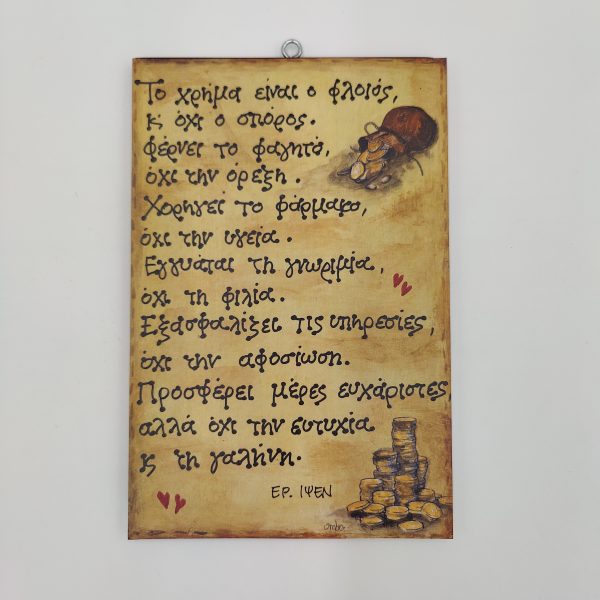 Το χρήμα είναι ο φλοιός,
κ όχι ο σπόρος.
Φέρνει το φαγητό,
όχι την όρεξη.
Χορηγεί το φάρμακο,
όχι την υγεία.
Εγγυάται τη γνωριμία,
όχι τη φιλία.
Εξασφαλίζει τις υπηρεσίες,
όχι την αφοσίωση.
Προσφέρει μέρες ευχάριστες,
αλλά όχι την ευτυχία
κ τη γαλήνη.
ΕΡ. ΙΨΕΝ